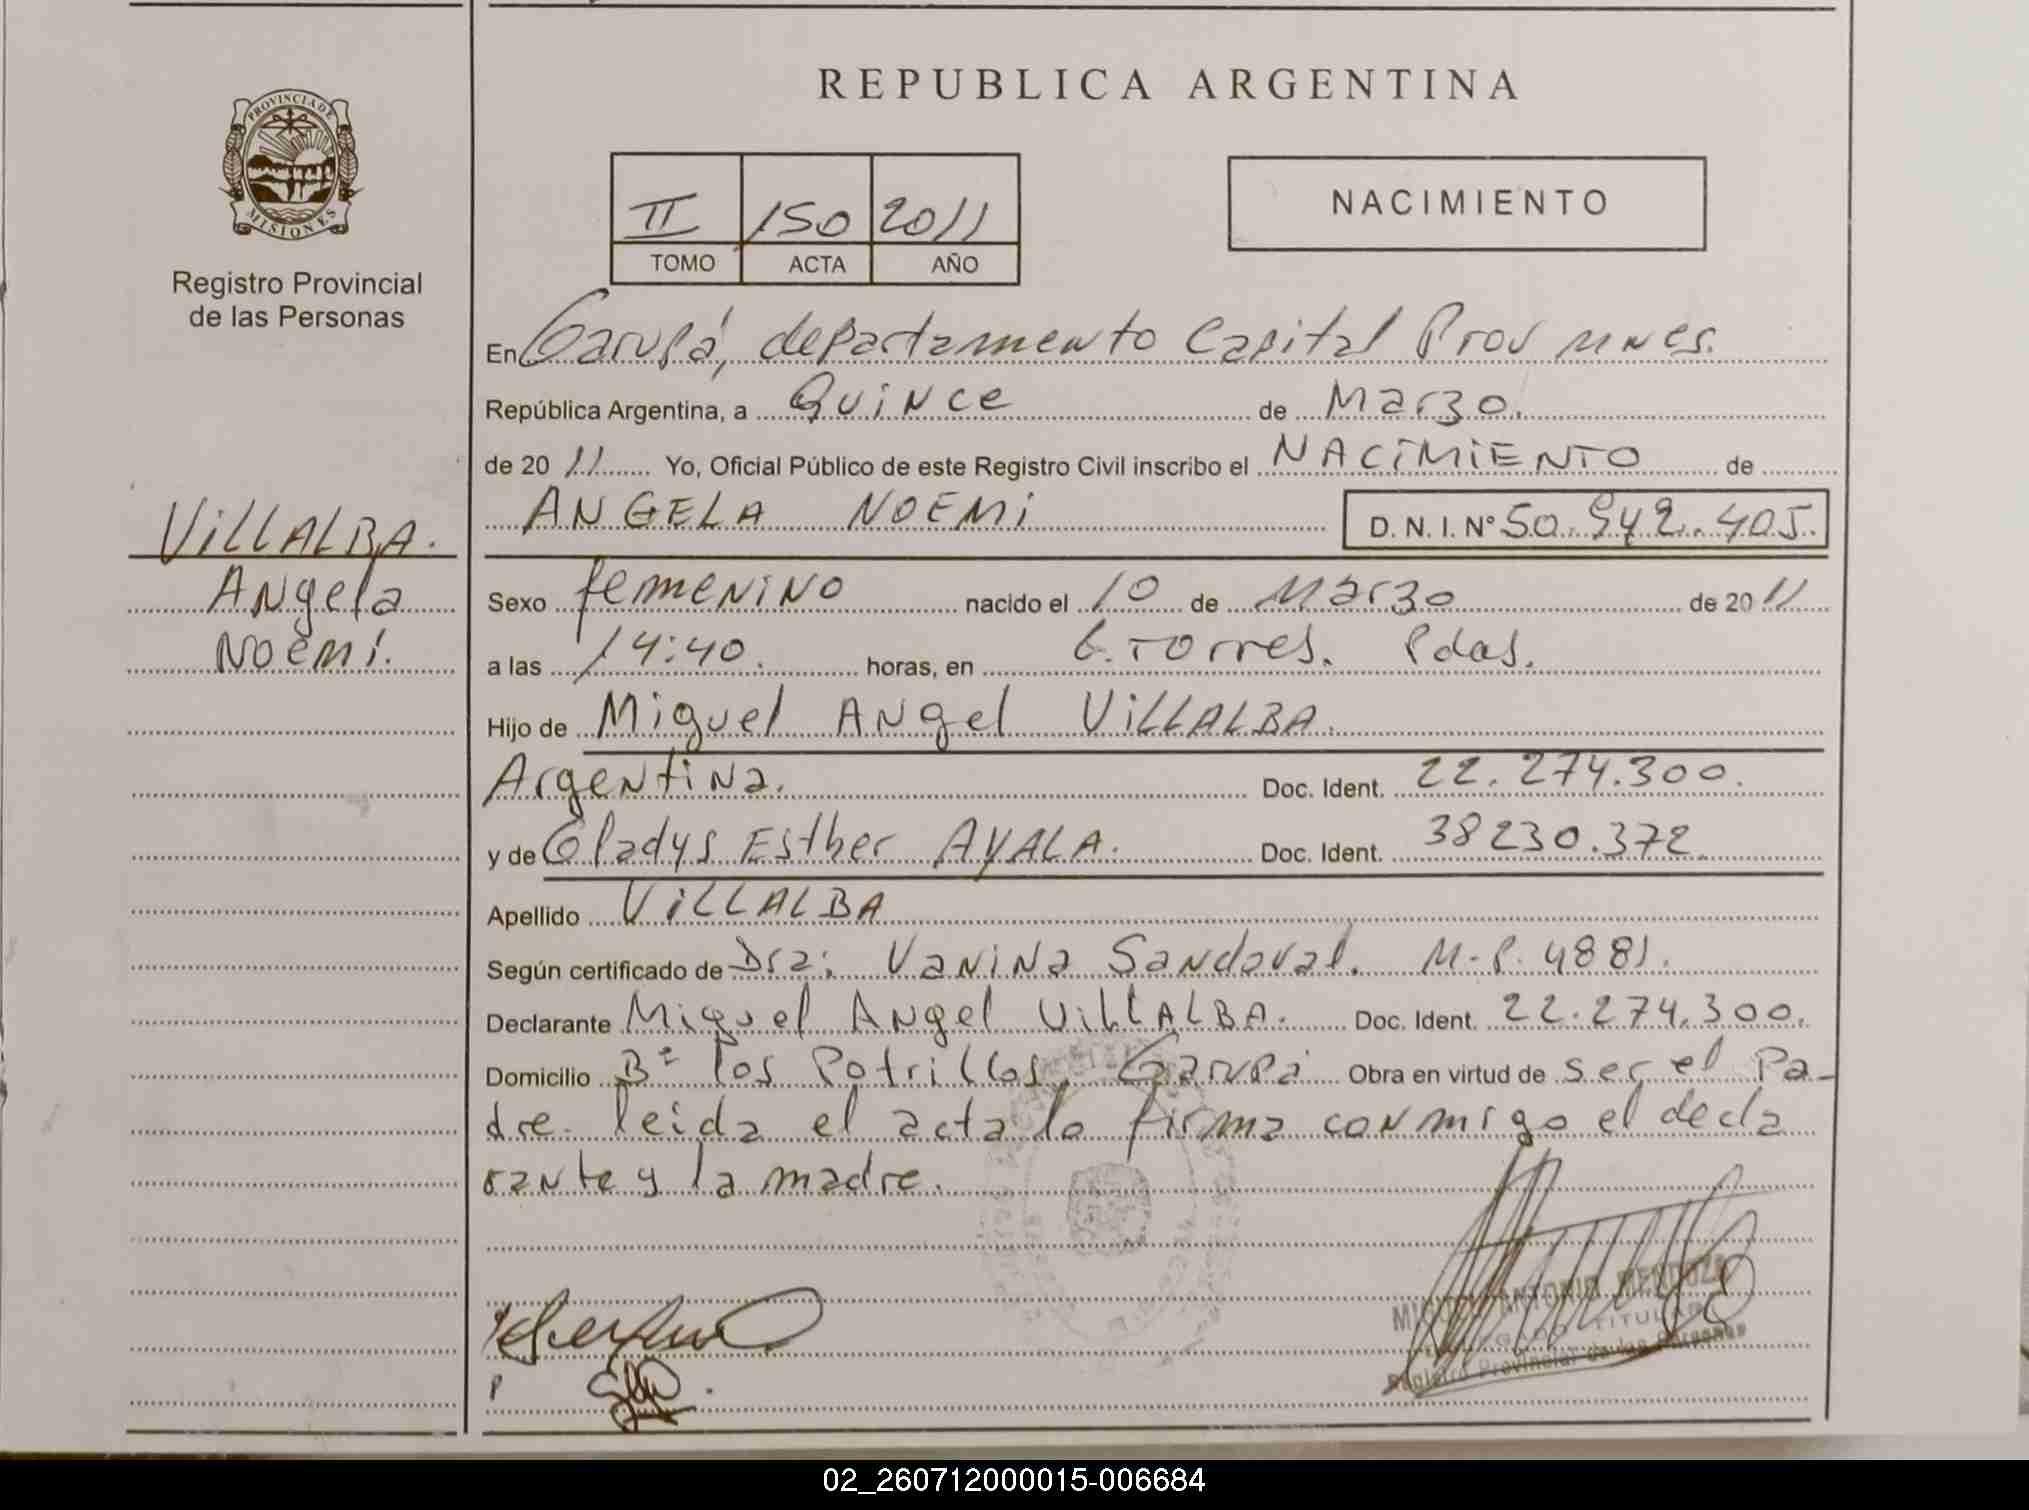 REPUBLICA ARGENTINA
PROVINCIA DE
MISIONES
Registro Provincial
de las Personas
II 150 2011
TOMO ACTA AÑO
NACIMIENTO
En Garupá, departamento Capital Prov Mnes.
República Argentina, a Quince de Marzo.
de 2011 Yo, Oficial Público de este Registro Civil inscribo el NACIMIENTO de
ANGELA NOEMI D. N. I. N° 50.942.405.
VILLALBA.
Angela
Noemí.
Sexo femenino nacido el 10 de Marzo de 2011
a las 14:40. horas, en Torres. Pdas.
Hijo de Miguel Angel VILLALBA.
Argentina. Doc. Ident. 22.274.300.
y de Gladys Esther AYALA. Doc. Ident. 38230.372
Apellido VILLALBA
Según certificado de Dra: Vanina Sandoval. M.P. 4881.
Declarante Miguel Angel VILLALBA. Doc. Ident. 22.274.300.
Domicilio B° los Potrillos, Garupá Obra en virtud de ser el Pa-
dre. leida el acta lo firma conmigo el decla
rante y la madre.
MIGUEL ANTONIO MENDOZA
DELEGADO TITULAR
Registro Provincial de las Personas
02_260712000015-006684